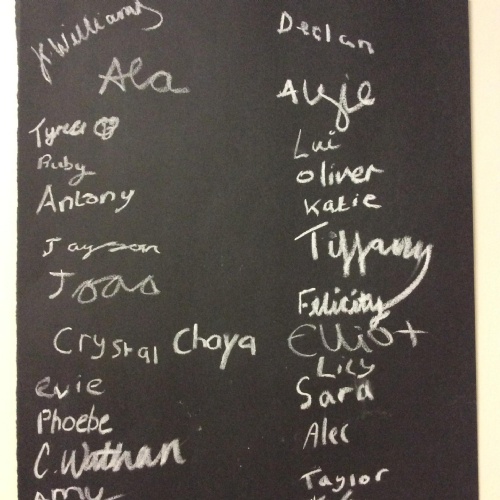 K Williams
Ala
Tyree
Ruby
Antony
Jayson
Joao
Crystal Chaya
evie
Phoebe
C. Wathan
Amy
Declan
Alyie
Lui
Oliver
Katie
Tiffany
Felicity
Elliot
Lily
Sara
Alec
Taylor